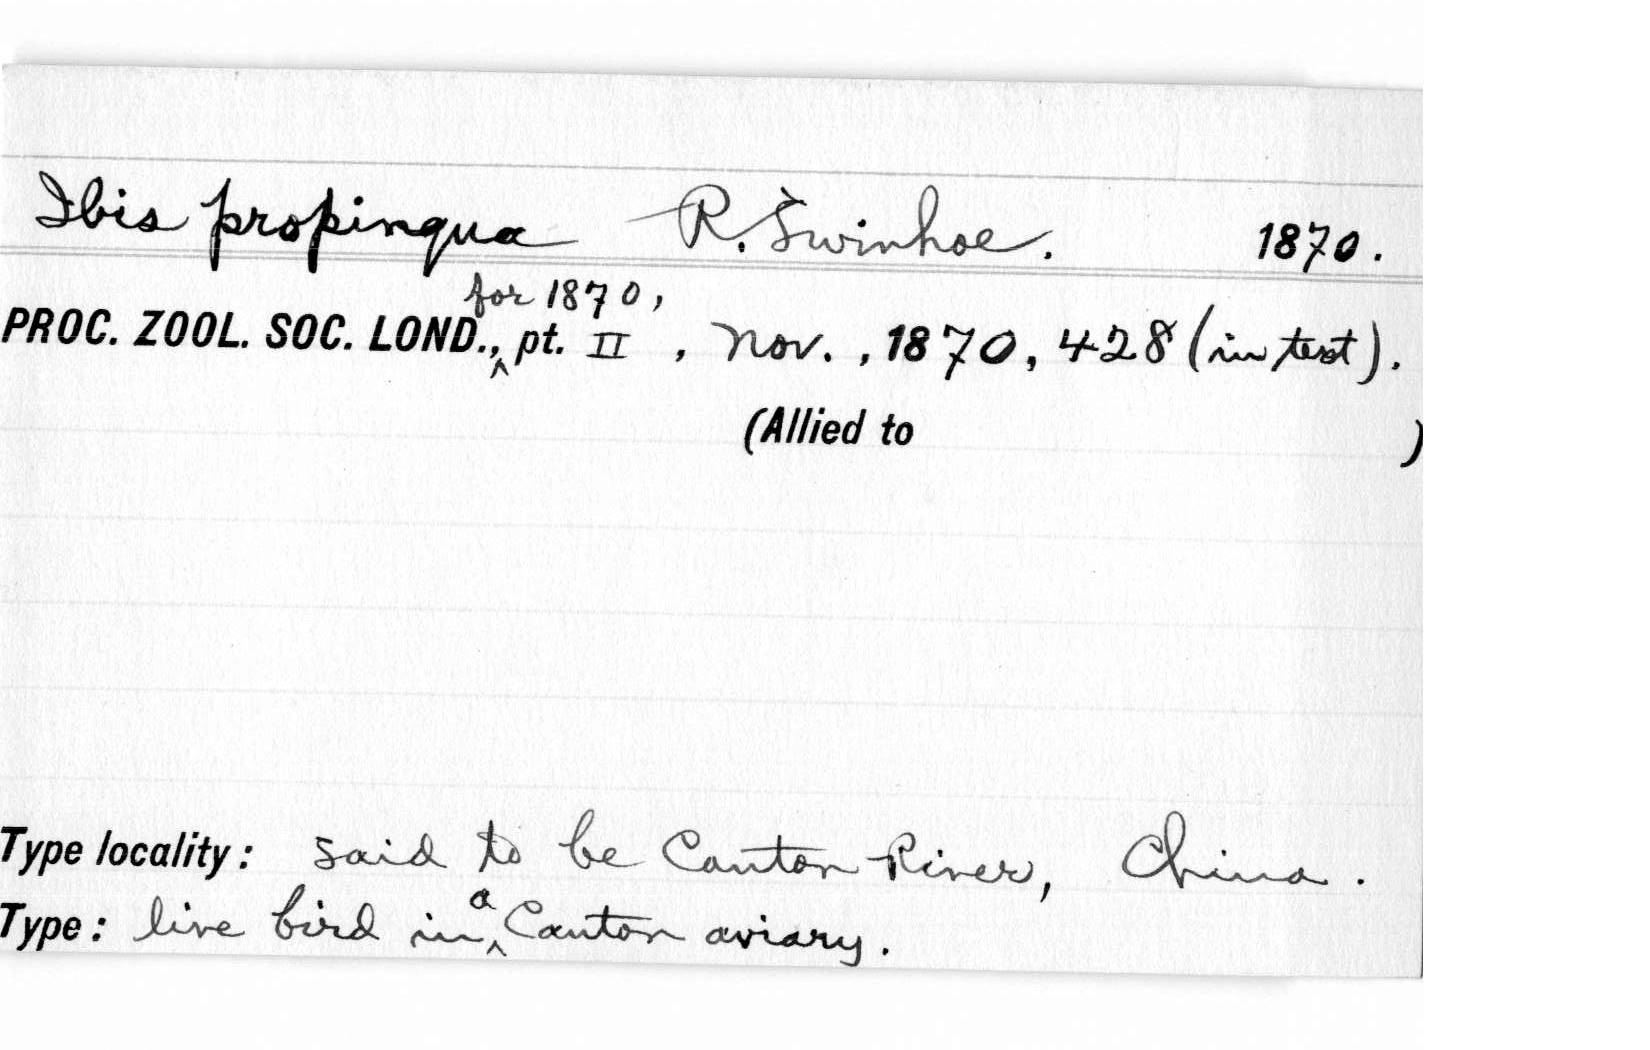 Ibis propinqua R. Swinhoe. 1870.
for 1870,
PROC. ZOOL. SOC. LOND.,‸ pt. II , Nov. , 1870, 428 (in text).
(Allied to )
Type locality: said to be Canton River, China.
Type: live bird in ‸a Canton aviary.